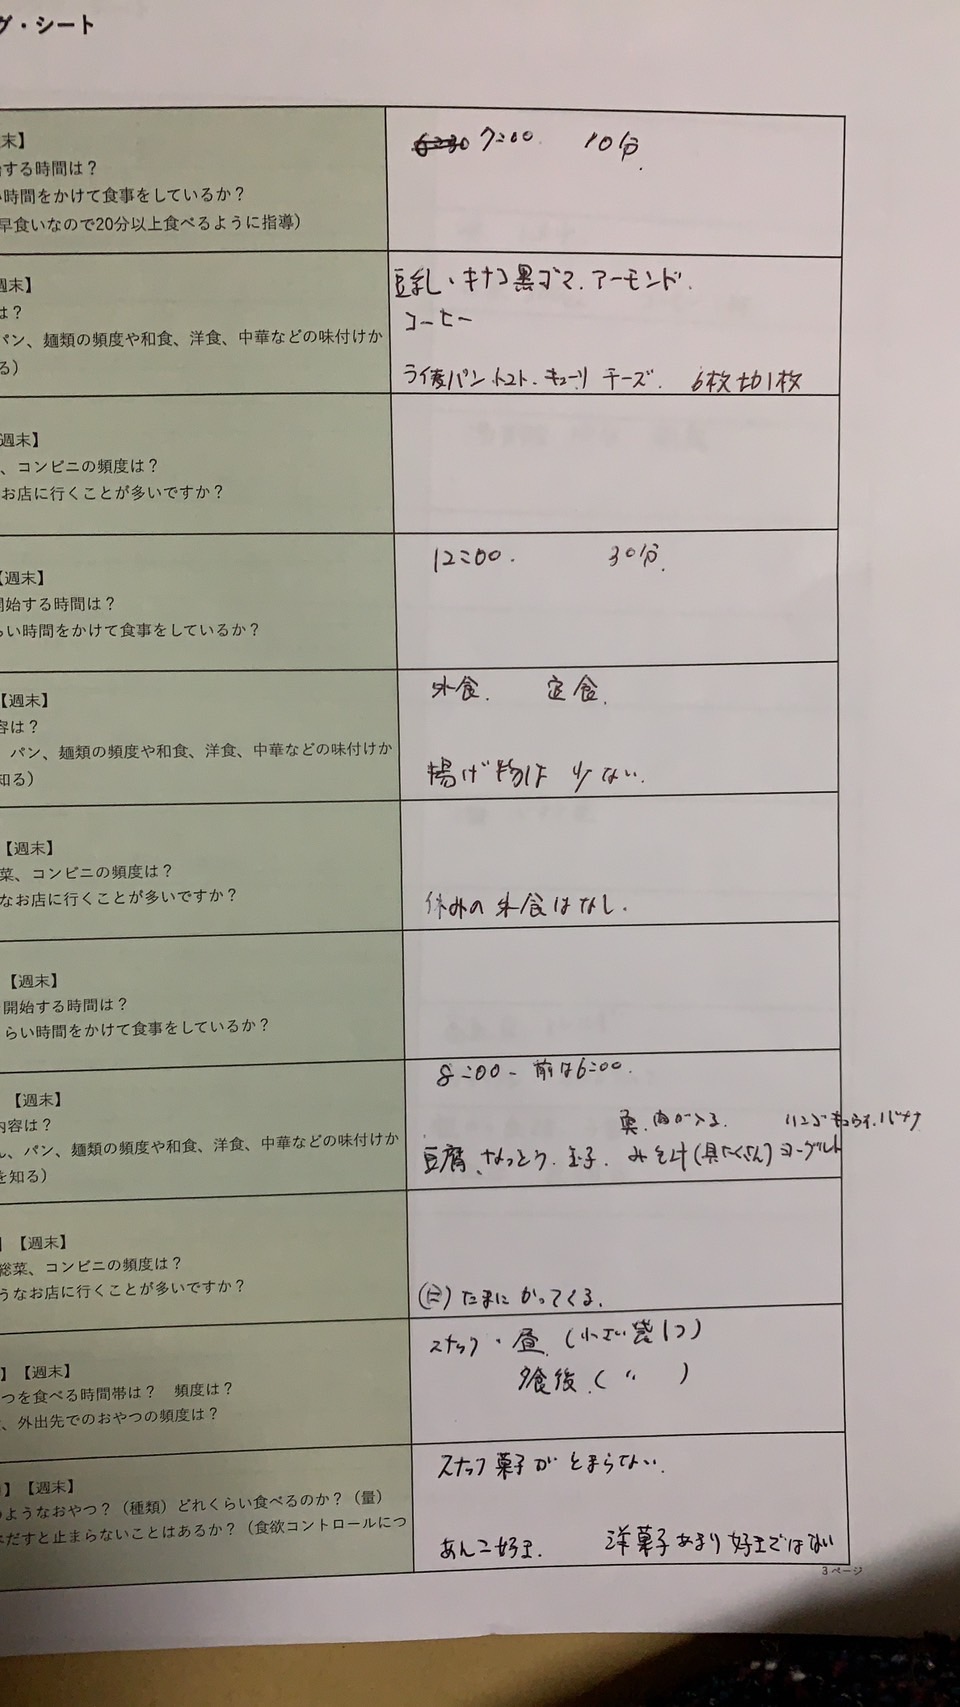 グ・シート
末】
する時間は？
時間をかけて食事をしているか？
早食いなので20分以上食べるように指導）
7:00 10分
週末】
は？
パン、麺類の頻度や和食、洋食、中華などの味付けか
る）
豆乳・キナコ黒ゴマ.アーモンド.
コーヒー
ライ麦パン.トースト.キューリ チーズ. 6枚切1枚
週末】
、コンビニの頻度は？
お店に行くことが多いですか？
【週末】
開始する時間は？
らい時間をかけて食事をしているか？
12:00. 30分.
【週末】
容は？
、パン、麺類の頻度や和食、洋食、中華などの味付けか
知る）
外食. 定食.
揚げ物は少ない.
【週末】
菜、コンビニの頻度は？
なお店に行くことが多いですか？
休みの外食はなし.
【週末】
開始する時間は？
らい時間をかけて食事をしているか？
【週末】
内容は？
ん、パン、麺類の頻度や和食、洋食、中華などの味付けか
を知る）
8:00- 前は6:00.
魚.肉が入る. リンゴ キュウイ.バナナ
豆腐.なっとう.玉子. みそ汁(具たくさん)ヨーグルト
】【週末】
総菜、コンビニの頻度は？
うなお店に行くことが多いですか？
たまにかってくる.
】【週末】
つを食べる時間帯は？ 頻度は？
、外出先でのおやつの頻度は？
スナック・昼.(小さい袋1つ)
夕食後.( 〃 )
】【週末】
のようなおやつ？（種類）どれくらい食べるのか？（量）
べだすと止まらないことはあるか？（食欲コントロールにつ
スナック菓子がとまらない.
あんこ好き. 洋菓子あまり好きではない
3 ページ